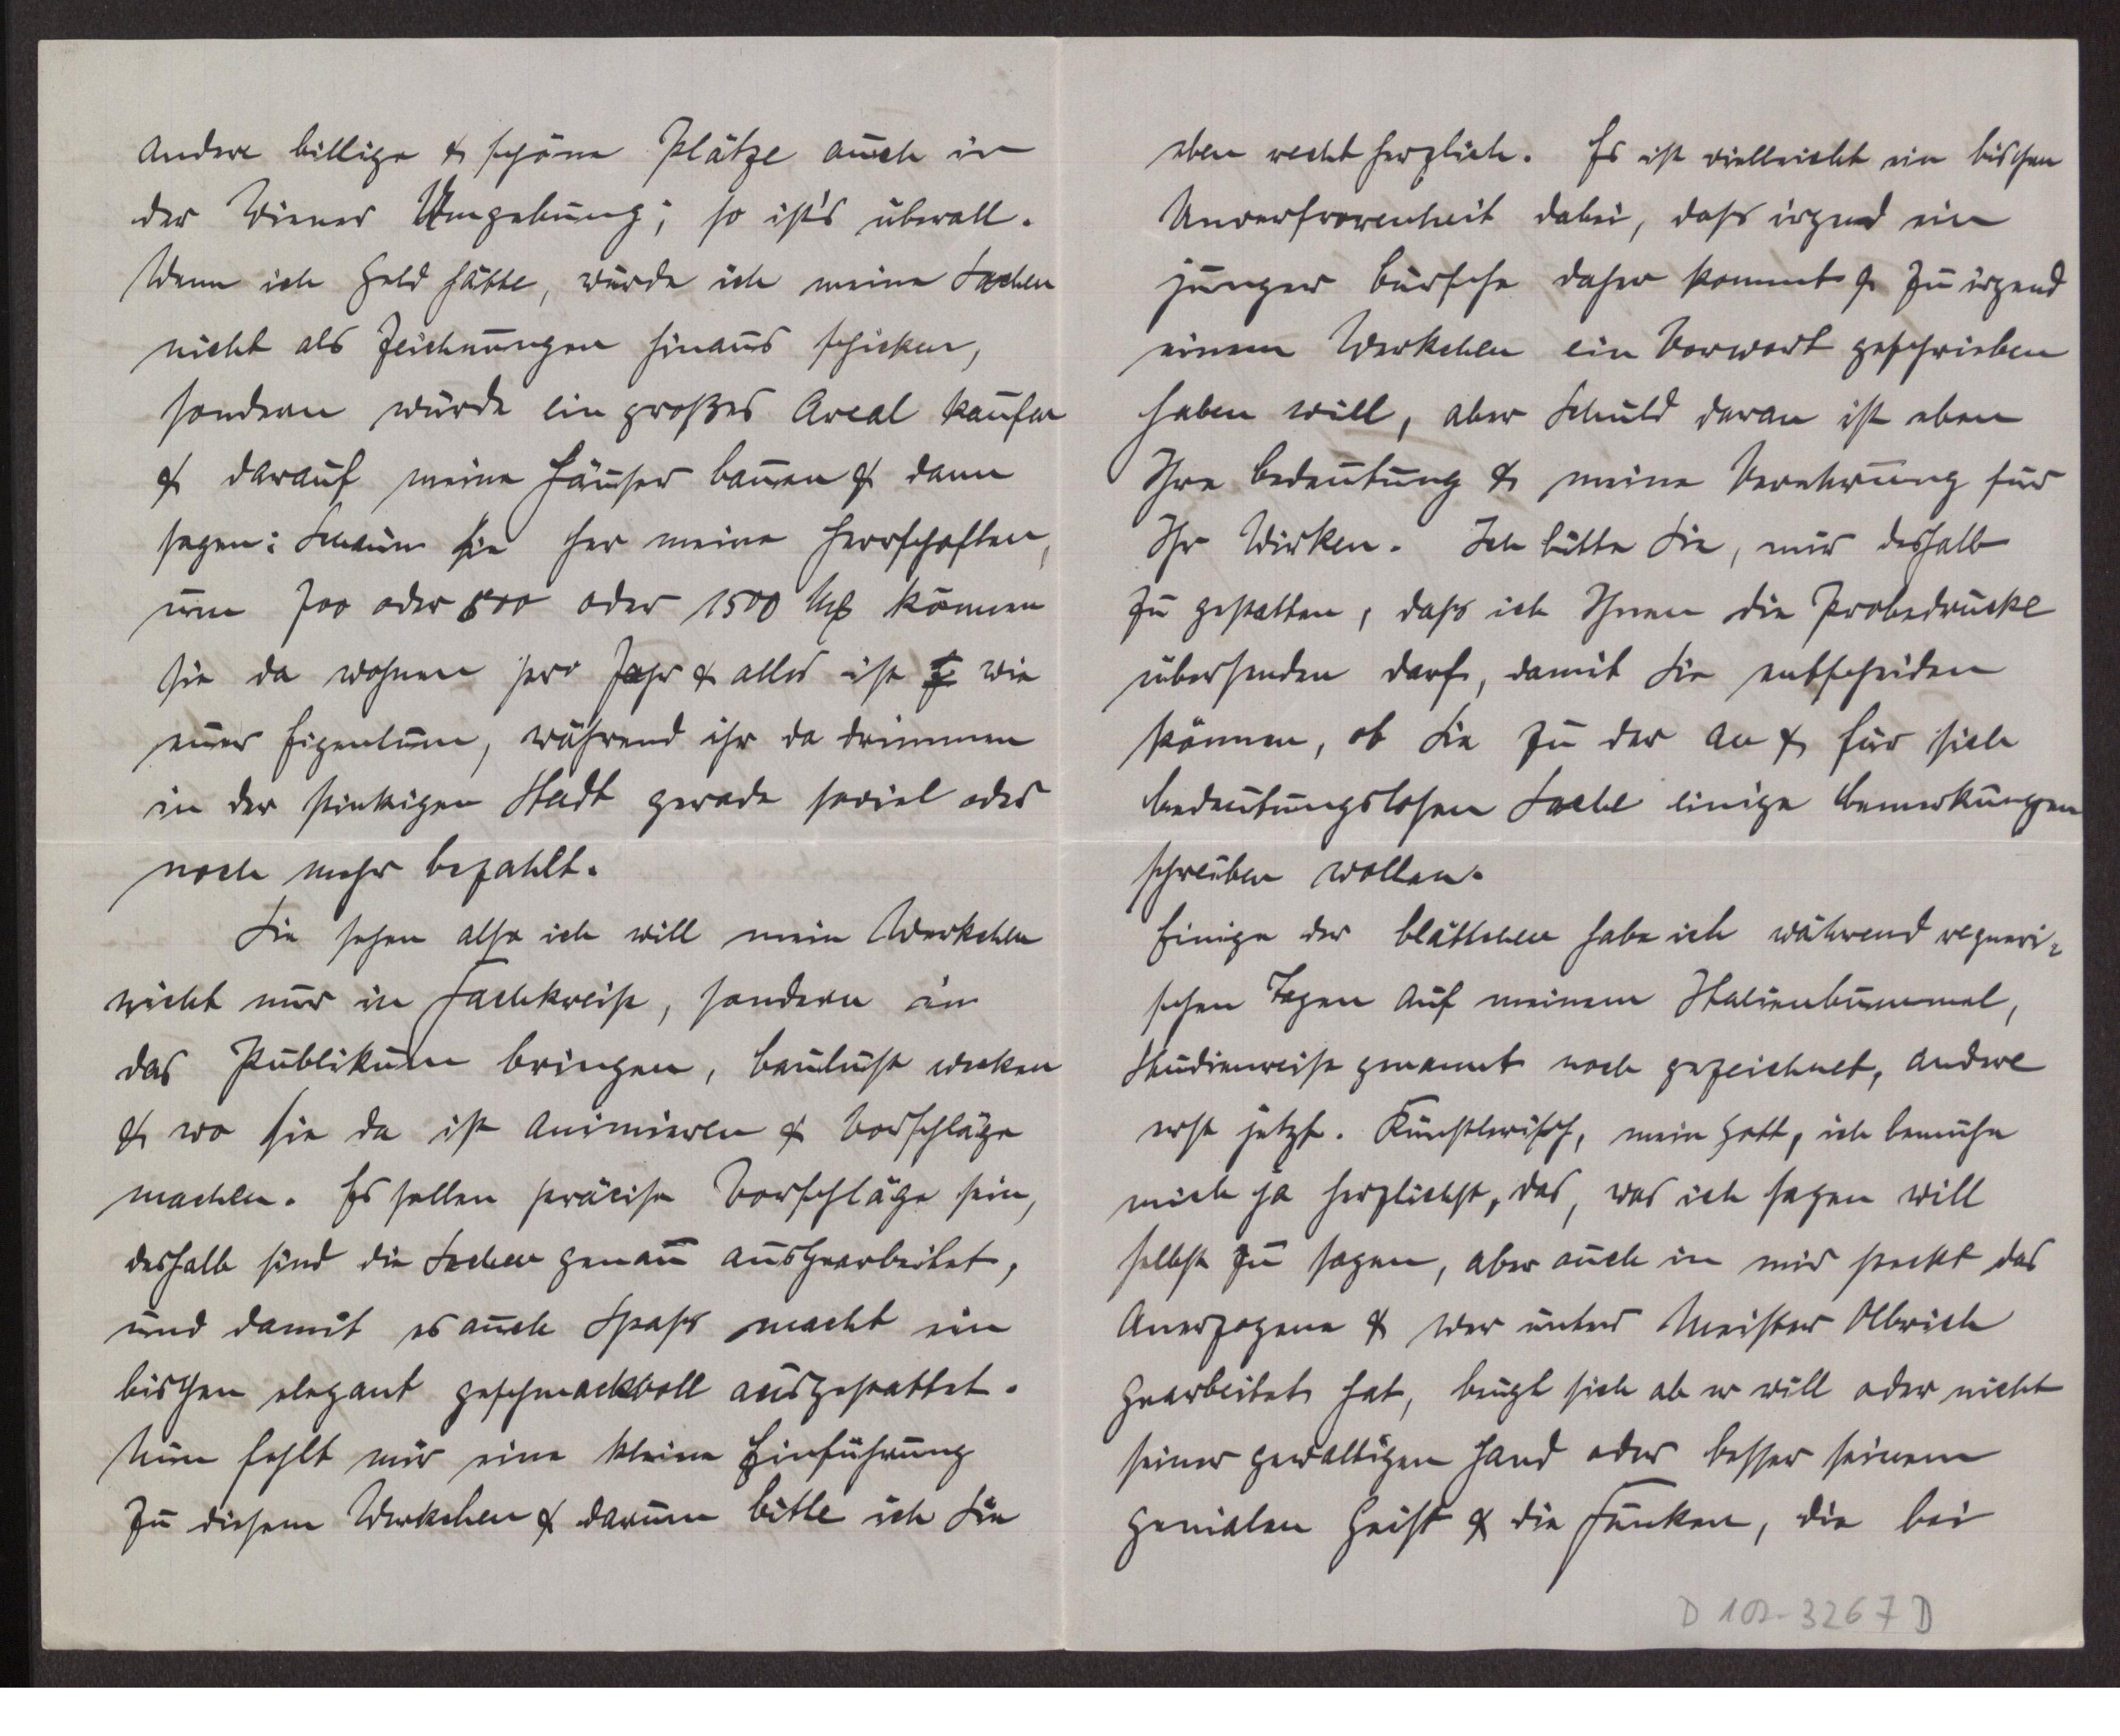 andere billige & schöne Plätze auch in
der Wiener Umgebung; so ist's überall.
Wenn ich Geld hätte, würde ich meine Sachen
nicht als Zeichnungen hinaus schicken,
sondern würde ein großes Areal kaufen
& darauf meine Häuser bauen & dann
sagen: Schaun Sie her meine Herrschaften,
um 700 oder 800 oder 1500 Mk können
Sie da wohnen pro Jahr & alles ist wie
euer Eigentum, während ihr da drinnen
in der stinkigen Stadt gerade soviel oder
noch mehr bezahlt.
Sie sehen also ich will mein Werkchen
nicht nur in Fachkreise, sondern in
das Publikum bringen, Baulust wecken
& wo sie da ist animieren & Vorschläge
machen. Es sollen präcise Vorschläge sein,
deshalb sind die Sachen genau ausgearbeitet,
und damit es auch Spass macht ein
bischen elegant geschmackvoll ausgestattet.
Nun fehlt mir eine kleine Einführung
zu diesem Werkchen & darum bitte ich Sie
eben recht herzlich. Es ist vielleicht ein bischen
Unverfrorenheit dabei, dass irgend ein
junger Bursche daher kommt & zu irgend
einem Werkchen ein Vorwort geschrieben
haben will, aber Schuld daran ist eben
Ihre Bedeutung & meine Verehrung für
Ihr Wirken. Ich bitte Sie, mir deshalb
zu gestatten, dass ich Ihnen die Probedrucke
übersenden darf, damit Sie entscheiden
können, ob Sie zu der an & für sich
bedeutungslosen Sache einige Bemerkungen
schreiben wollen.
Einige der Blättchen habe ich während regneri-
schen Tagen auf meinem Italienbummel,
Studienreise genannt noch gezeichnet, andere
erst jetzt. Künstlerisch, mein Gott, ich bemühe
mich ja herzlichst, das, was ich sagen will
selbst zu sagen, aber auch in mir steckt das
Anerzogene & wer unter Meister Olbrich
gearbeitet hat, beugt sich ob er will oder nicht
seiner gewaltigen Hand oder besser seinem
genialen Geist & die Funken, die bei
D 102-3267 D